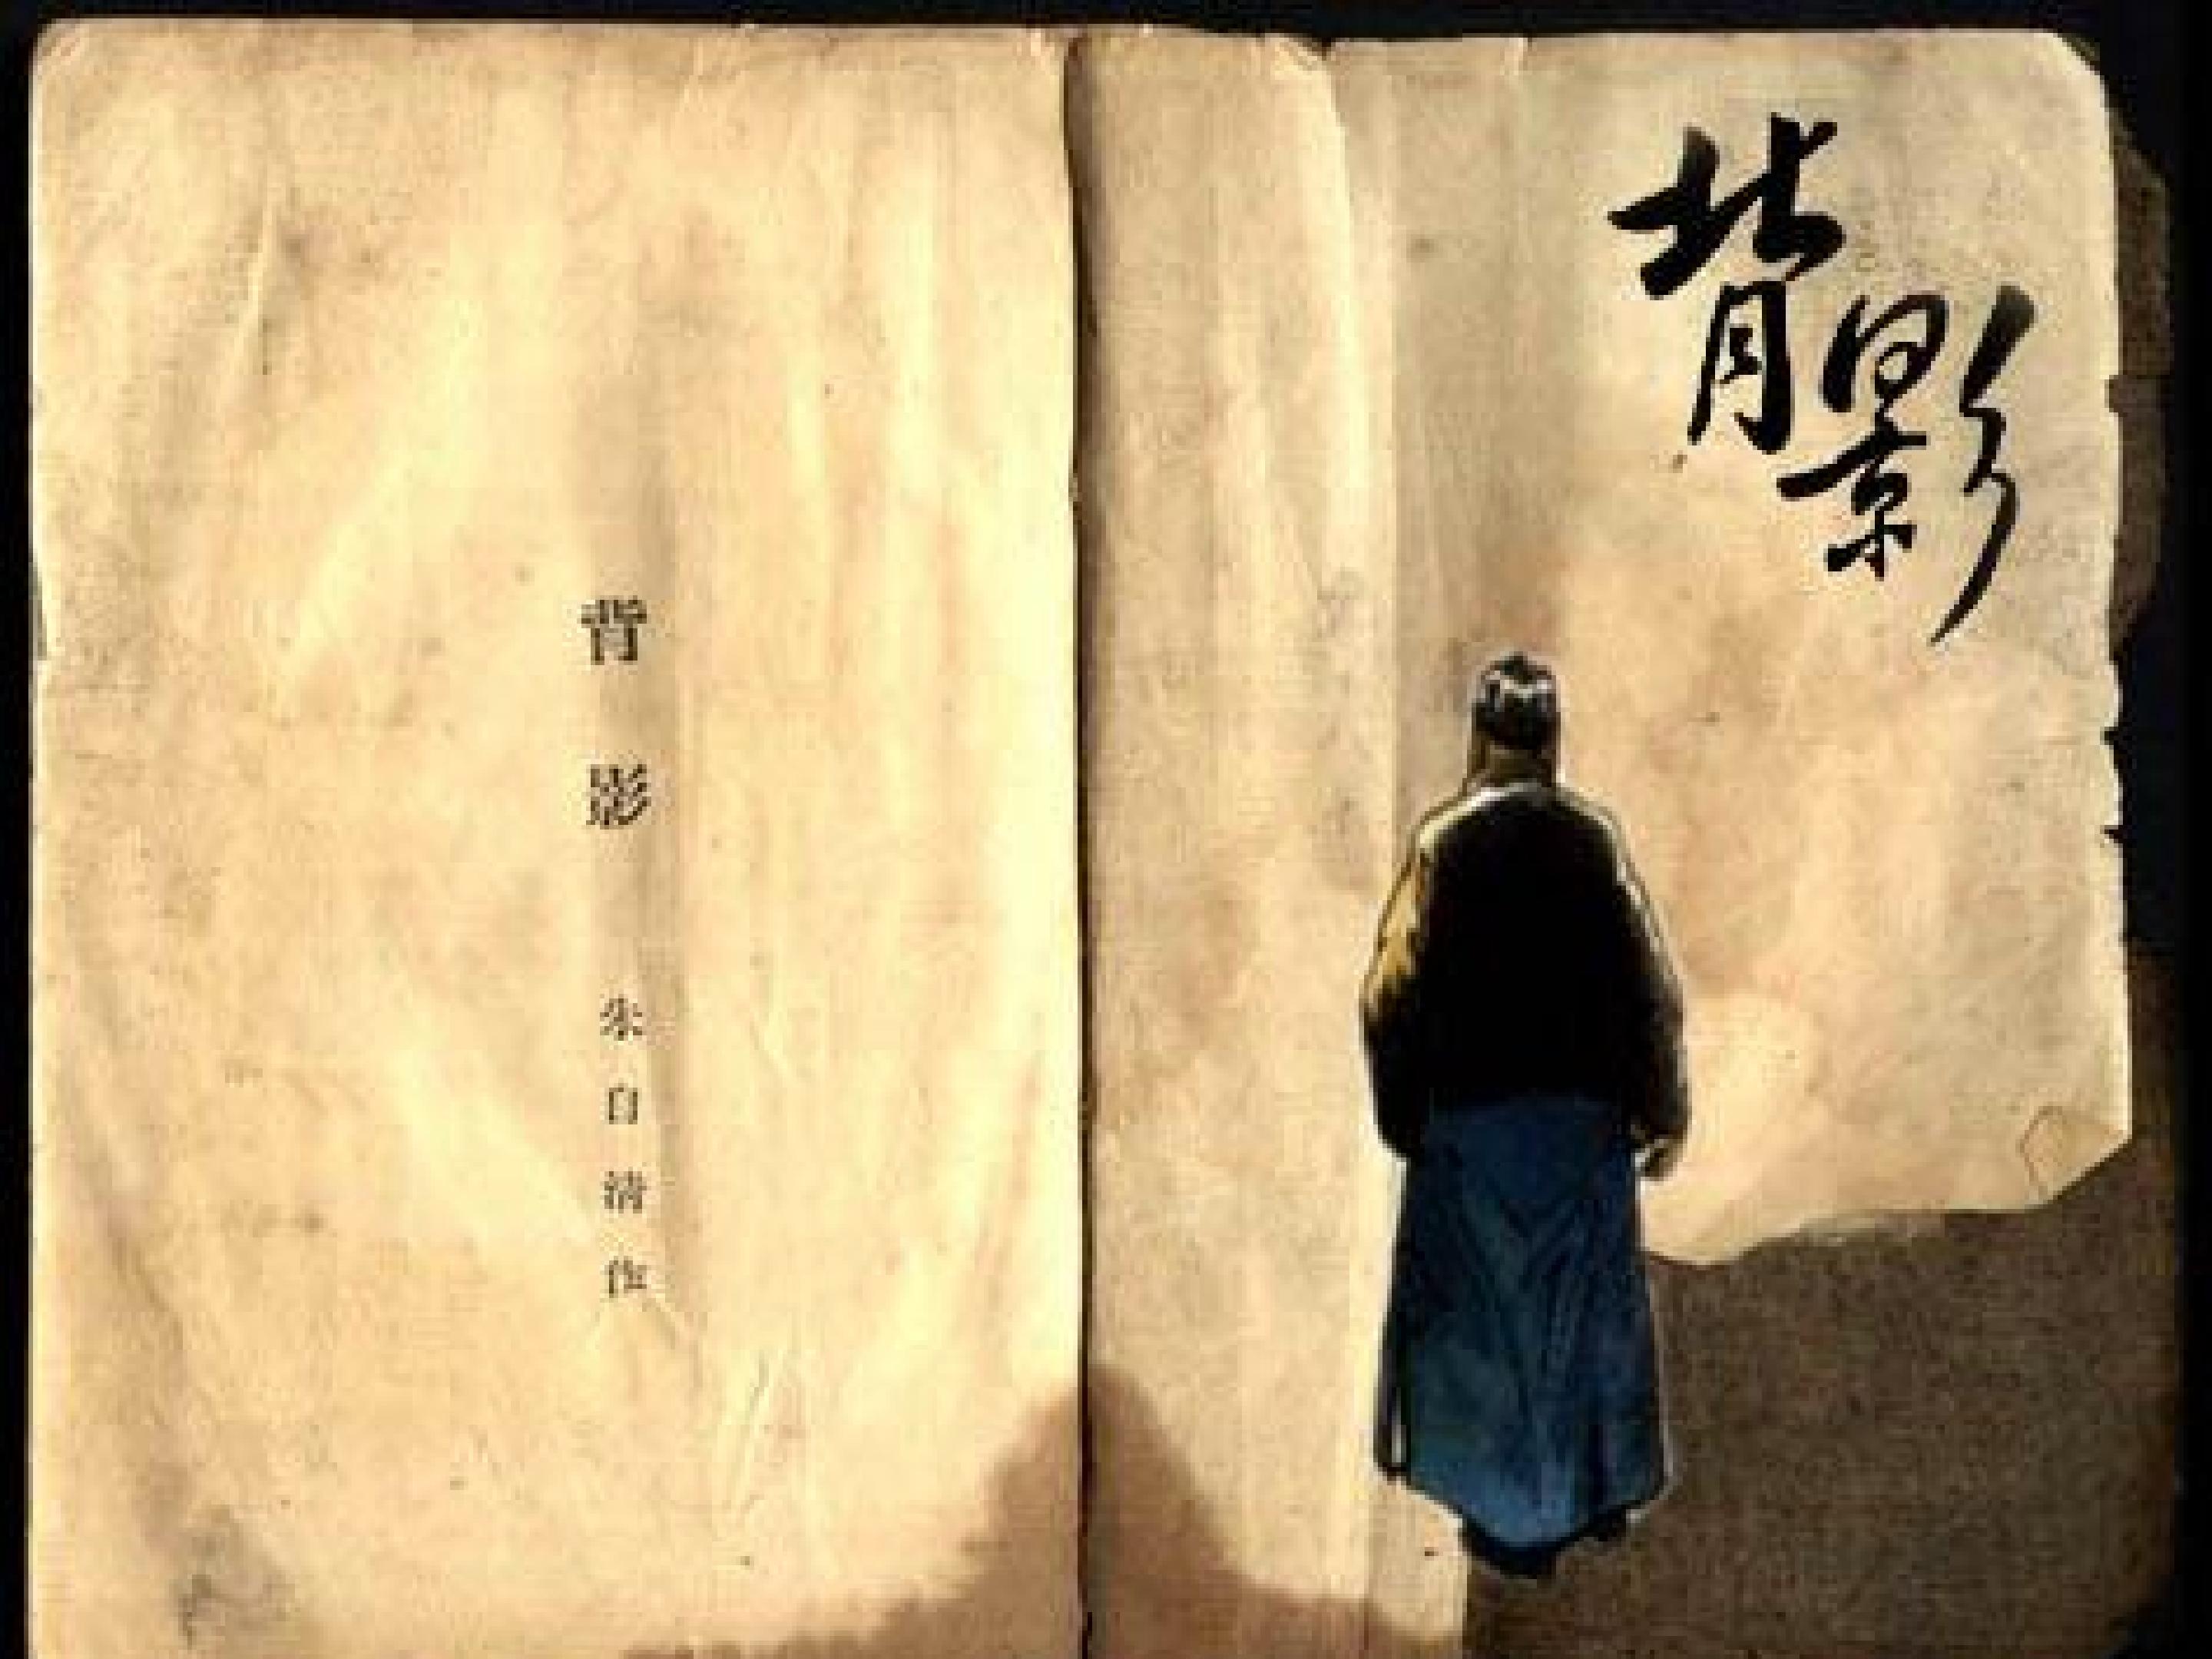 背影
背影
朱自清作